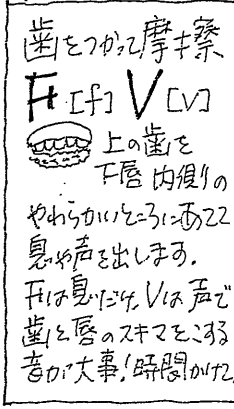 歯をつかって摩擦
F [f] V [v]
上の歯を
下唇内側の
やわらかいところにあてて
息や声を出します。
Fは息だけ、Vは声で
歯と唇のスキマをこする
音が大事!時間かけて